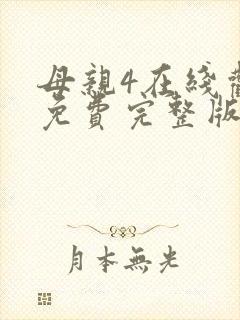 母親4在綫
免費完整版
月本無光